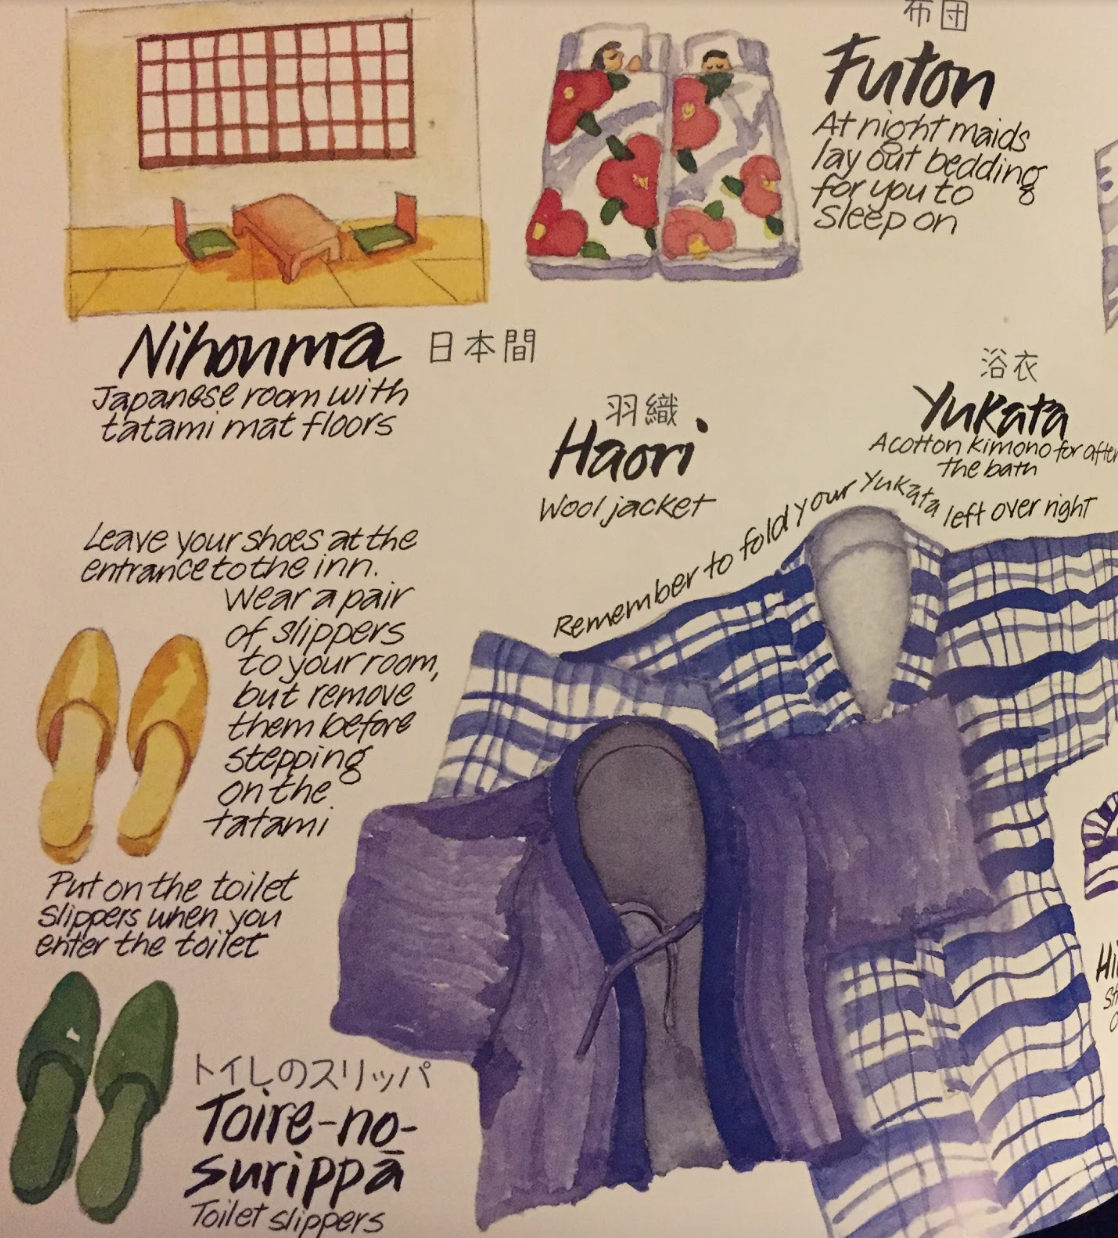 布団
Futon
At night maids
lay out bedding
for you to
sleep on
Nihonma 日本間
Japanese room with
tatami mat floors
羽織
Haori
Wool jacket
浴衣
Yukata
A cotton kimono for after
the bath
Remember to fold your Yukata left over right
Leave your shoes at the
entrance to the inn.
Wear a pair
of slippers
to your room,
but remove
them before
stepping
on the
tatami
Put on the toilet
slippers when you
enter the toilet
トイレのスリッパ
Toire-no-
surippā
Toilet slippers